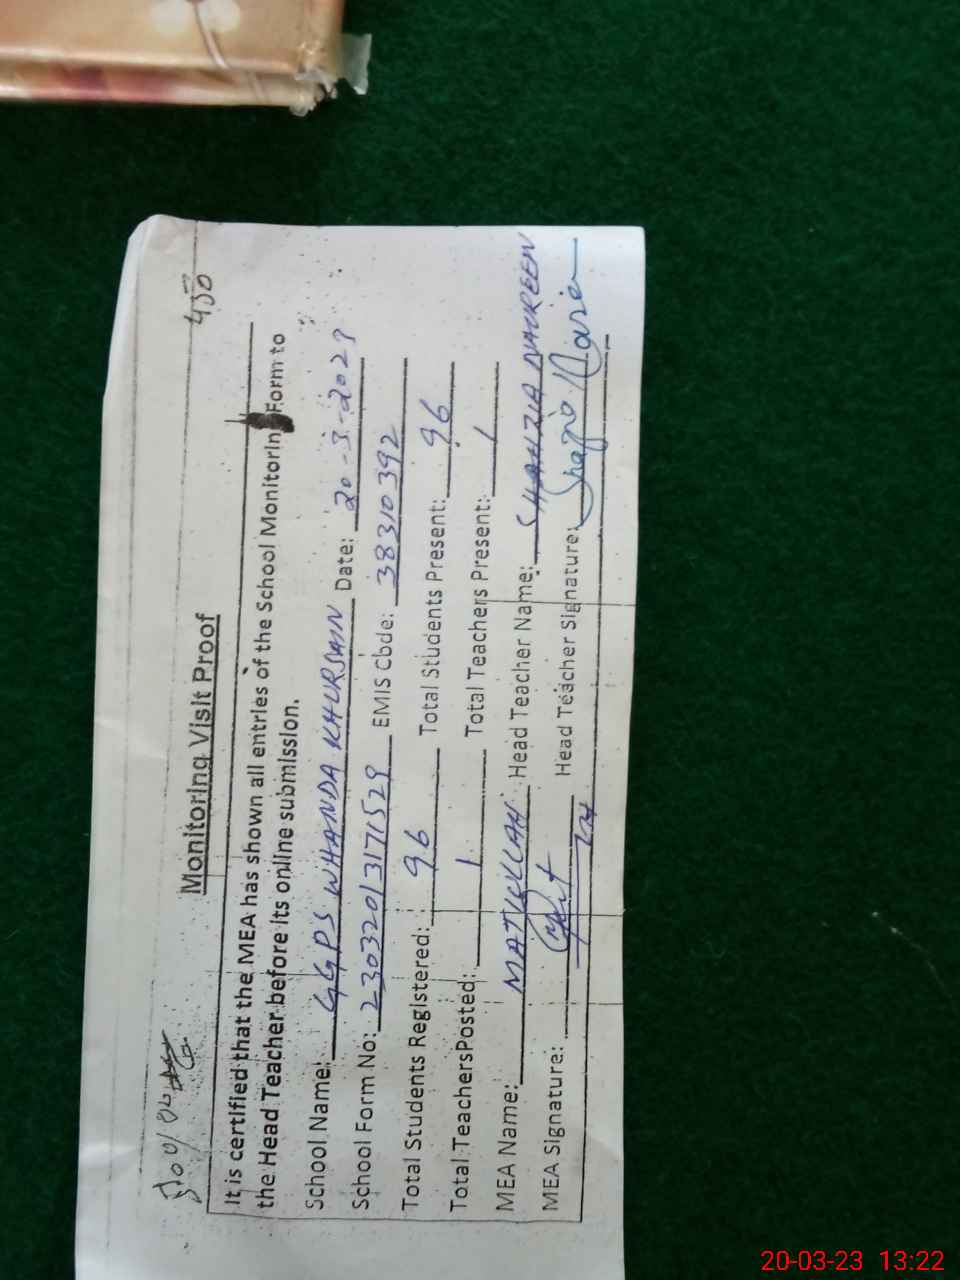 450
Monitoring Visit Proof
It is certified that the MEA has shown all entries of the School Monitorin Form to
the Head Teacher before its online submission.
School Name: GGPS WHANDA KHURSAIN Date: 20-3-2023
School Form No: 23032013171529 EMIS Code: 38310392
Total Students Registered: 96 Total Students Present: 96
Total TeachersPosted: 1 Total Teachers Present: 1
MEA Name: MATIULLAH Head Teacher Name: SHAHZIA NAUREEN
MEA Signature: Head Teacher Signature:
20-03-23 13:22